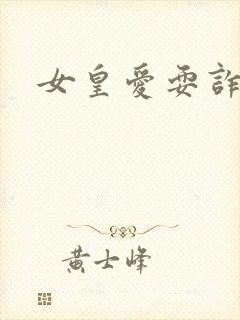 女皇愛耍詐
黃士峰